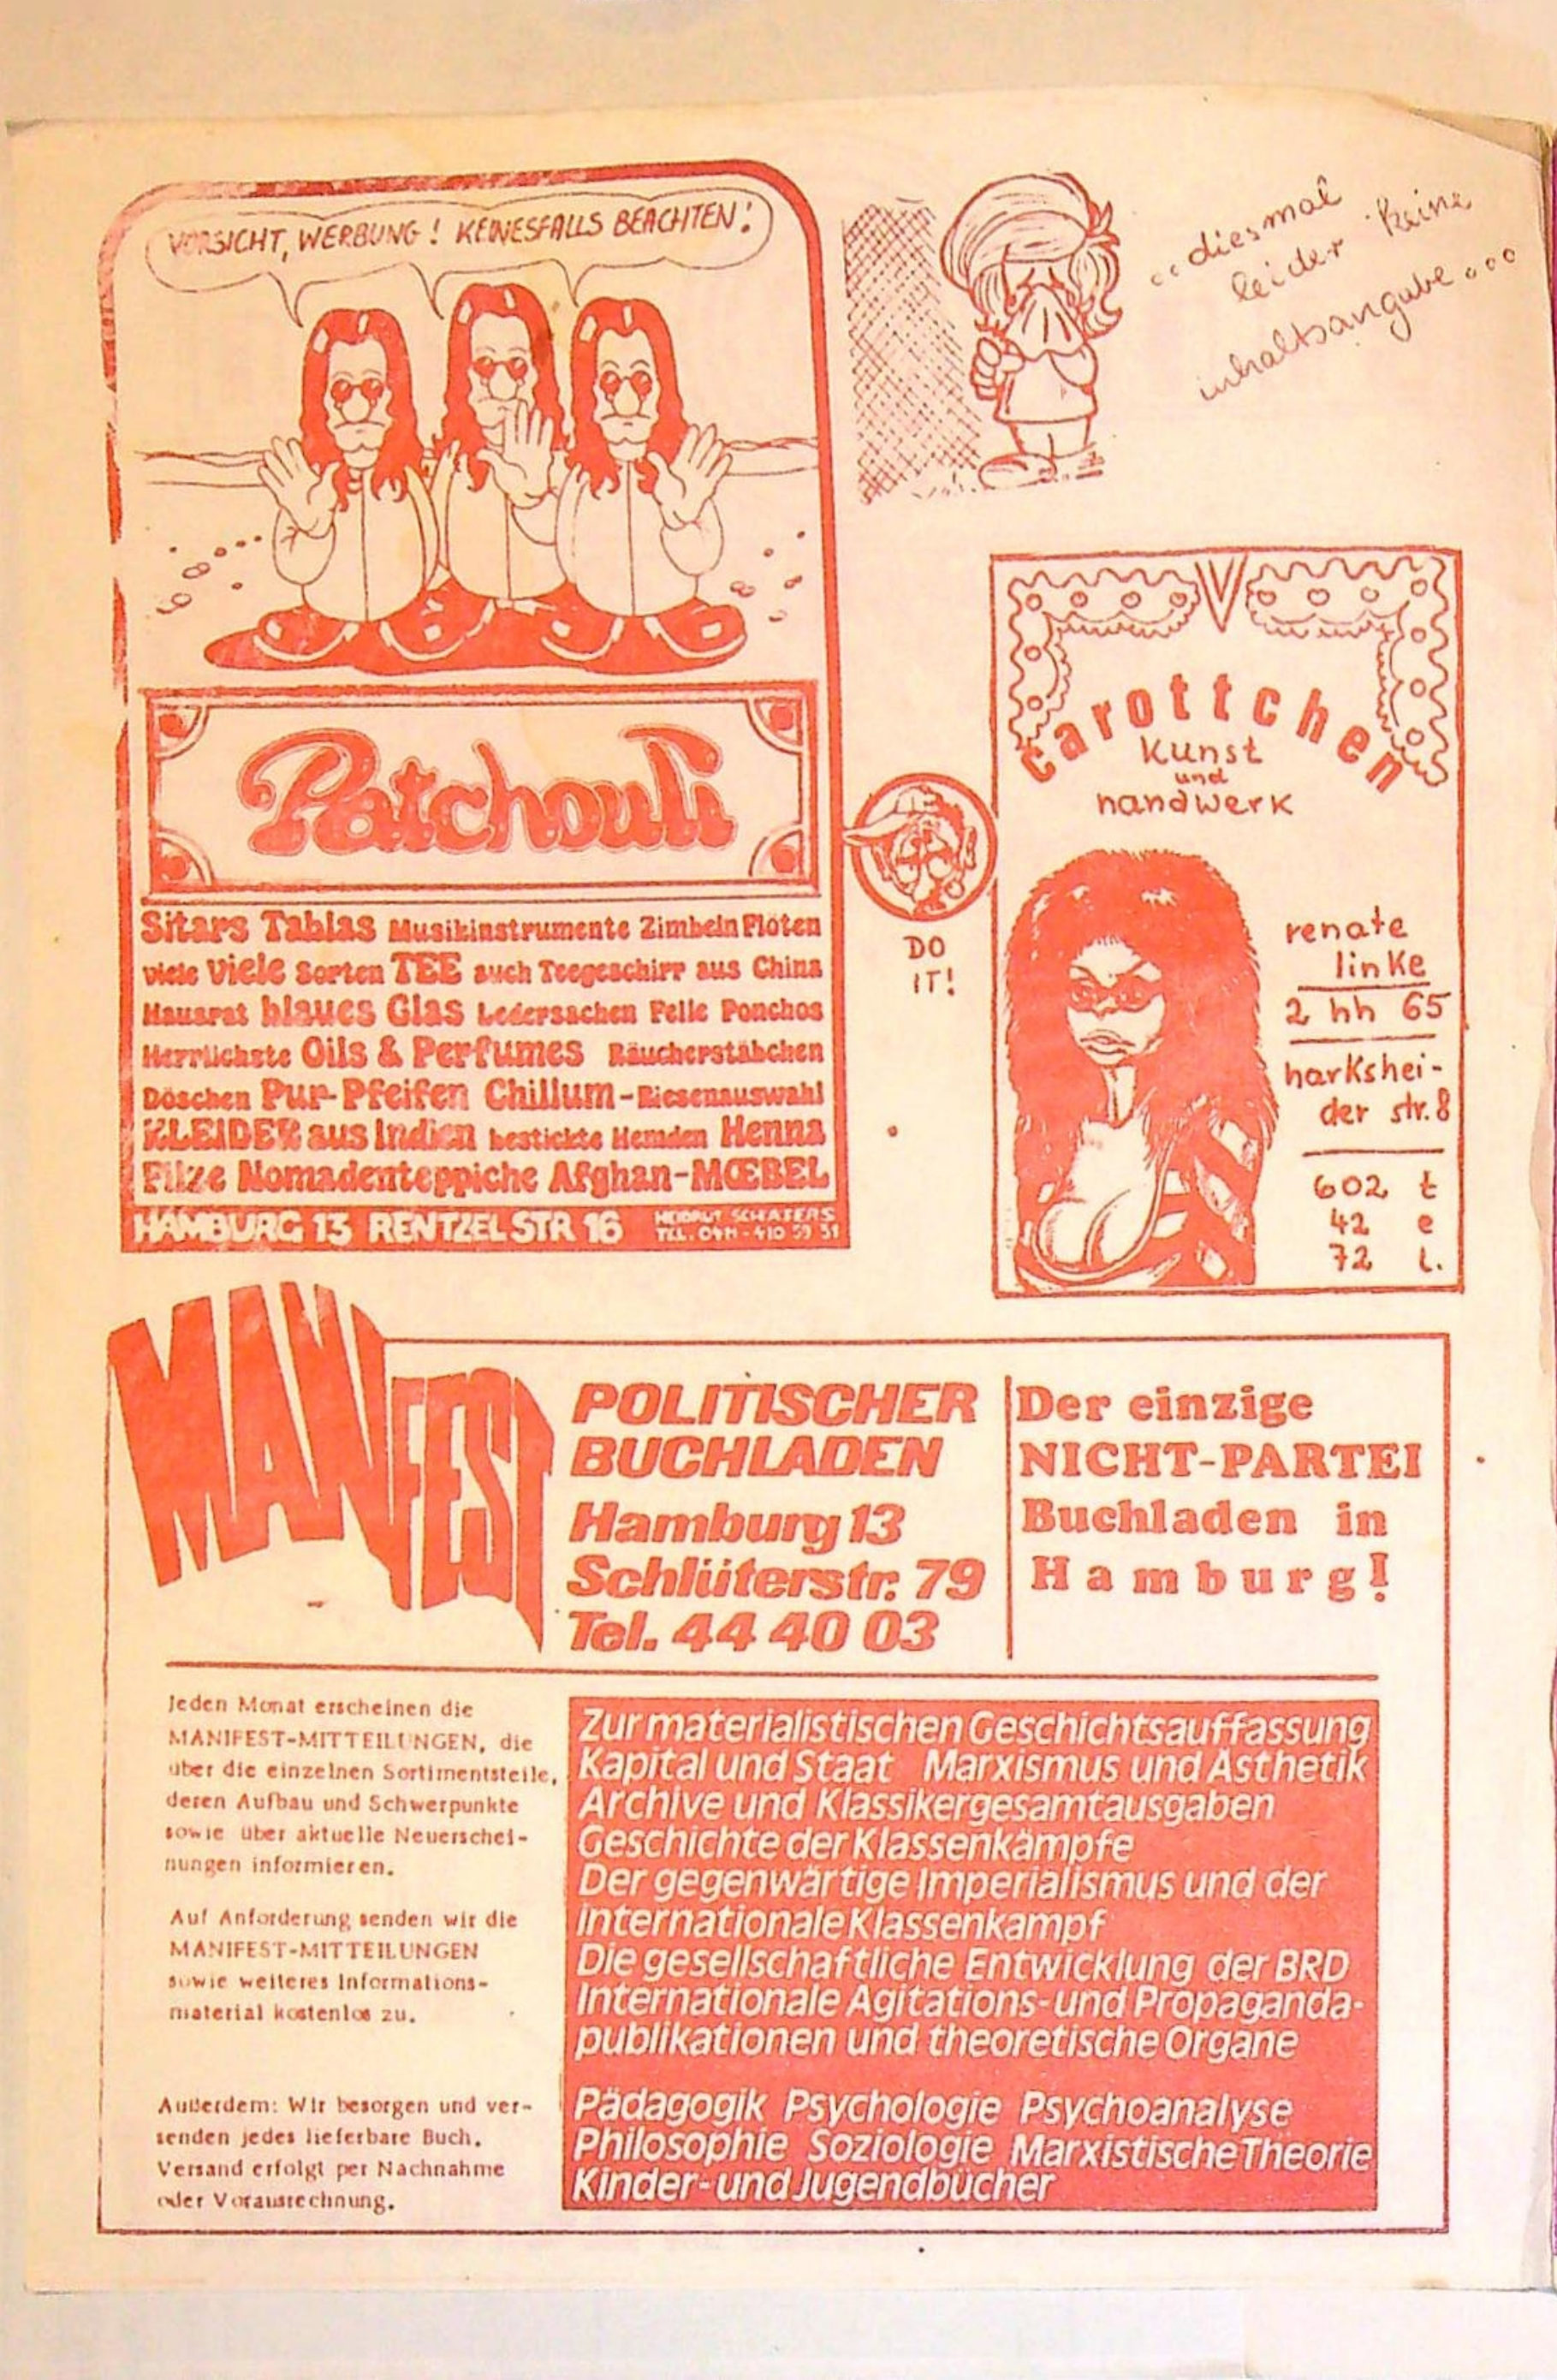 VORSICHT, WERBUNG! KEINESFALLS BEACHTEN!
Patchouli
Sitars Tablas Musikinstrumente Zimbeln Flöten
viele viele Sorten TEE auch Teegeschirr aus China
Hausrat blaues Glas Ledersachen Felle Ponchos
Herrlichste Oils & Perfumes Räucherstäbchen
Döschen Pur-Pfeifen Chillum-Riesenauswahl
KLEIDER aus Indien bestickte Hemden Henna
Filze Nomadenteppiche Afghan-MŒBEL
HAMBURG 13 RENTZELSTR 16
TEL. 0411-410 59 51
..diesmal
leider keine
inhaltsangabe...
DO
IT!
carottchen
kunst
und
handwerk
renate
linke
2 hh 65
harkshei-
der str. 8
602 t
42 e
72 l.
MANIFEST
POLITISCHER
BUCHLADEN
Hamburg 13
Schlüterstr. 79
Tel. 44 40 03
Der einzige
NICHT-PARTEI
Buchladen in
Hamburg!
Jeden Monat erscheinen die
MANIFEST-MITTEILUNGEN, die
über die einzelnen Sortimentsteile,
deren Aufbau und Schwerpunkte
sowie über aktuelle Neuerschei-
nungen informieren.
Auf Anforderung senden wir die
MANIFEST-MITTEILUNGEN
sowie weiteres Informations-
material kostenlos zu.
Außerdem: Wir besorgen und ver-
senden jedes lieferbare Buch.
Versand erfolgt per Nachnahme
oder Vorausrechnung.
Zur materialistischen Geschichtsauffassung
Kapital und Staat Marxismus und Ästhetik
Archive und Klassikergesamtausgaben
Geschichte der Klassenkämpfe
Der gegenwärtige Imperialismus und der
internationale Klassenkampf
Die gesellschaftliche Entwicklung der BRD
Internationale Agitations- und Propaganda-
publikationen und theoretische Organe
Pädagogik Psychologie Psychoanalyse
Philosophie Soziologie Marxistische Theorie
Kinder- und Jugendbücher